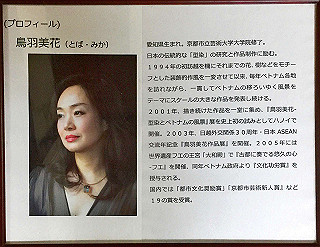 (プロフィール)
鳥羽美花(とば・みか)
愛知県生まれ。京都市立芸術大学大学院修了。
日本の伝統的な「型染」の研究と作品制作に励む。
1994年の初訪越を機にそれまでの花、樹などをモチー
フとした装飾的作風を一変させて以来、毎年ベトナム各地
を訪れながら、一貫してベトナムの移ろいゆく風景を
テーマにスケールの大きな作品を発表し続ける。
2001年、描き続けた作品を一堂に集め、『鳥羽美花-
型染とベトナムの風景』展を史上初の試みとしてハノイで
開催。2003年、日越外交関係30周年・日本ASEAN
交流年記念『鳥羽美花作品展』を開催。2005年には
世界遺産フエの王宮「太和殿」で『古都に奏でる悠久の心
-フエ』を開催、同年ベトナム政府より『文化功労賞』を
授与される。
国内では「都市文化奨励賞」『京都市芸術新人賞』など
19の賞を受賞。